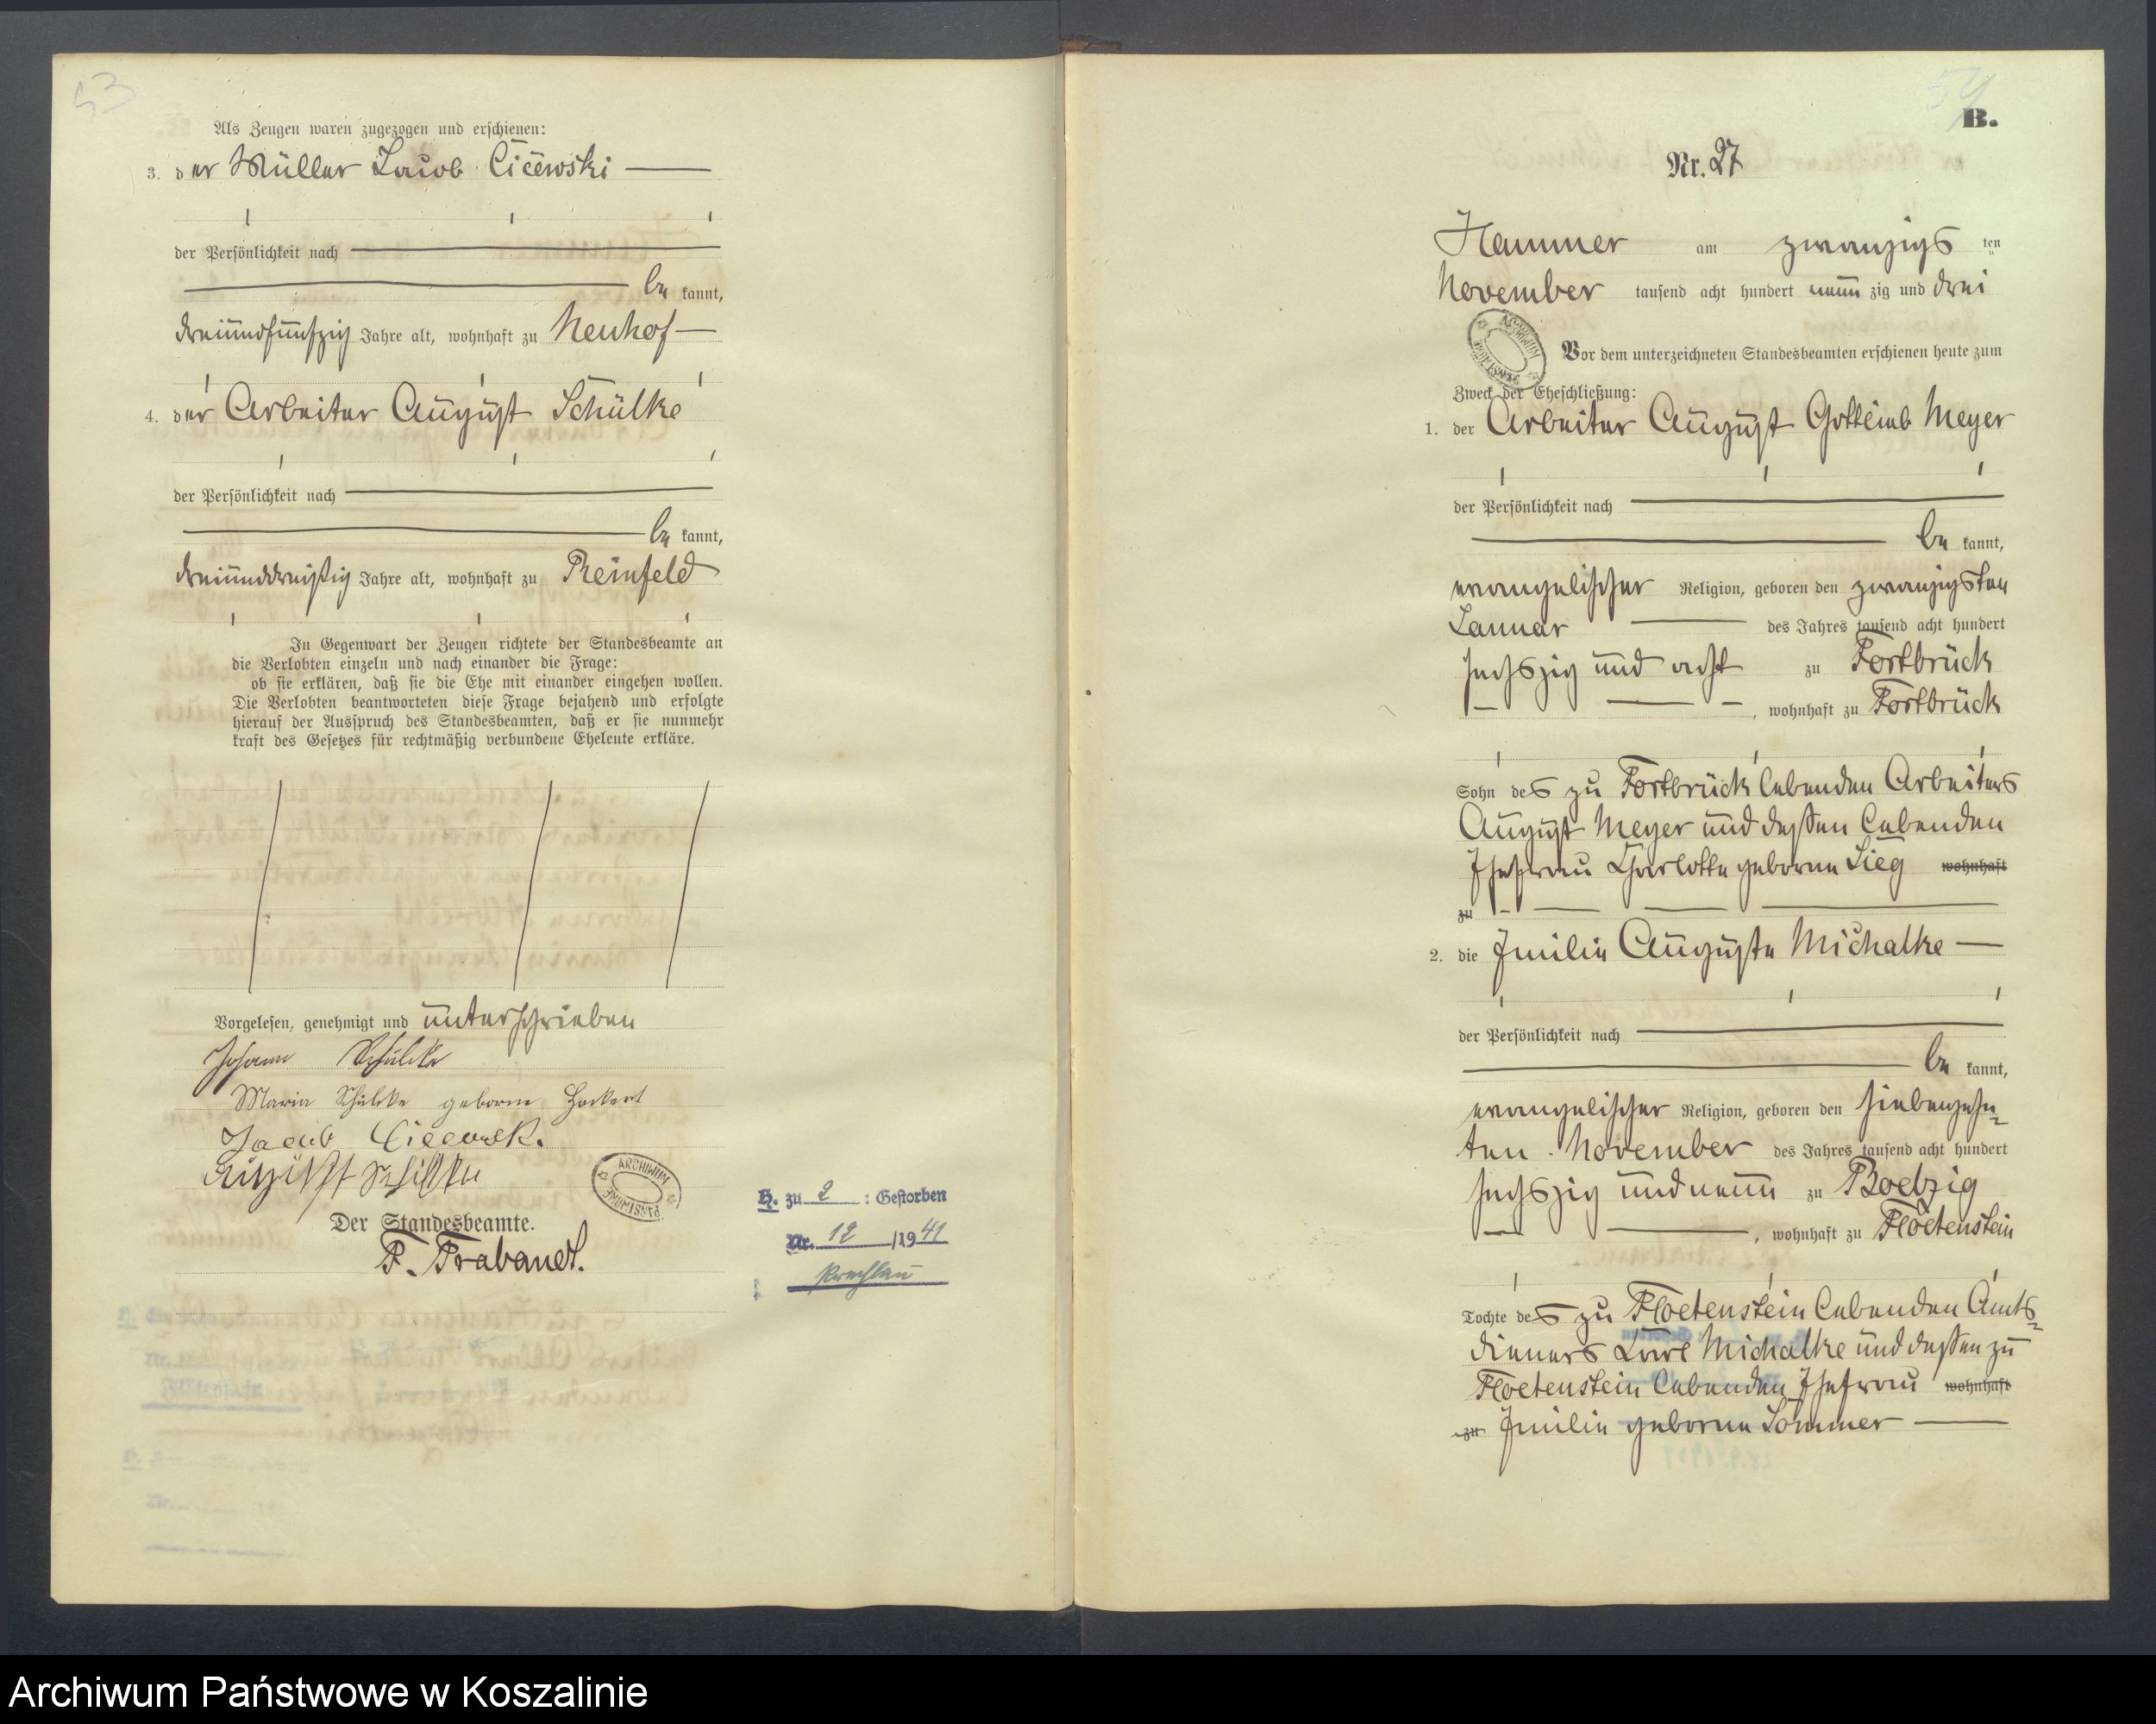 53
Als Zeugen waren zugezogen und erschienen:
3. der Müller Jacob Cicewski
der Persönlichkeit nach
be kannt,
dreiundfünfzig Jahre alt, wohnhaft zu Neuhof
4. der Arbeiter August Schülke
der Persönlichkeit nach
be kannt,
dreiunddreißig Jahre alt, wohnhaft zu Reinfeld
In Gegenwart der Zeugen richtete der Standesbeamte an
die Verlobten einzeln und nach einander die Frage:
ob sie erklären, daß sie die Ehe mit einander eingehen wollen.
Die Verlobten beantworteten diese Frage bejahend und erfolgte
hierauf der Ausspruch des Standesbeamten, daß er sie nunmehr
kraft des Gesetzes für rechtmäßig verbundene Eheleute erkläre.
Vorgelesen, genehmigt und unterschrieben
Johann Schülke
Maria Schülke geborne
Jacob
August Schülke
ARCHIWUM PAŃSTWOWE
Der Standesbeamte.
F. Trabandt.
H. zu 2 : Gestorben
Nr. 12 /1941
Prechlau
54
B.
Nr. 27
Hammer am zwanzigs ten
November tausend acht hundert neun zig und drei
ARCHIWUM PAŃSTWOWE
Vor dem unterzeichneten Standesbeamten erschienen heute zum
Zweck der Eheschließung:
1. der Arbeiter August Gottlieb Meyer
der Persönlichkeit nach
be kannt,
evangelischer Religion, geboren den zwanzigsten
Januar des Jahres tausend acht hundert
sechszig und acht zu Forstbrück
, wohnhaft zu Forstbrück
Sohn des zu Forstbrück lebenden Arbeiters
August Meyer und dessen lebenden
Ehefrau Charlotte geborne Sieg wohnhaft
zu
2. die Emilie Auguste Michalke
der Persönlichkeit nach
be kannt,
evangelischer Religion, geboren den siebenzehn-
ten November des Jahres tausend acht hundert
sechszig und neun zu Boelzig
, wohnhaft zu Floetenstein
Tochter des zu Floetenstein lebenden Amts-
dieners Karl Michalke und dessen zu
Floetenstein lebenden Ehefrau wohnhaft
zu Emilie geborne Sommer
Archiwum Państwowe w Koszalinie